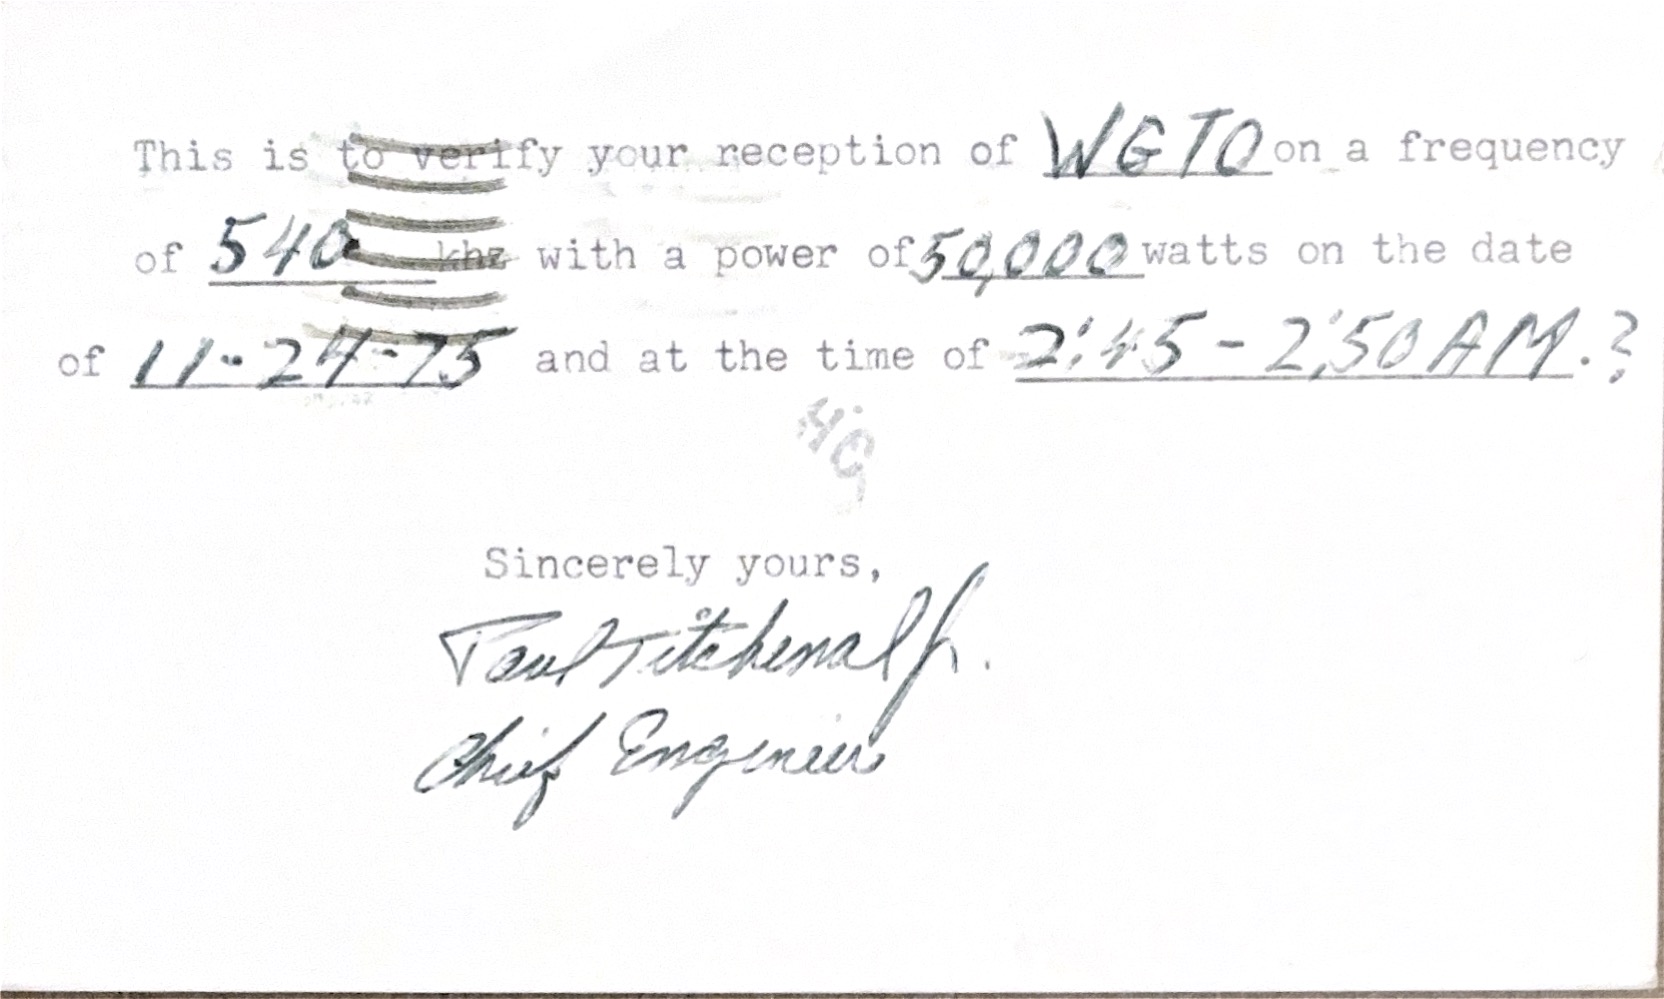 This is to verify your reception of WGTO on a frequency
of 540 khz with a power of 50,000 watts on the date
of 11-24-75 and at the time of 2:45-2:50 AM.?
Sincerely yours,
Paul Titchenal Jr.
Chief Engineer